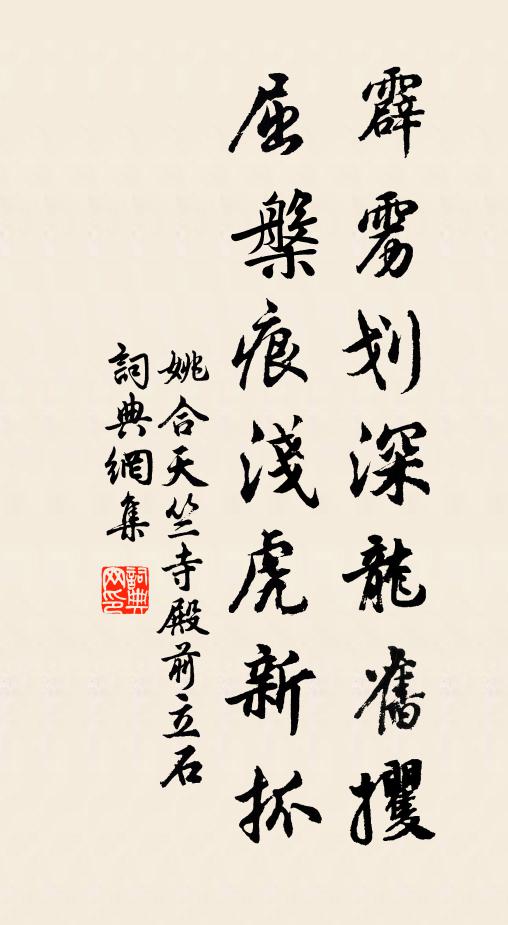 霹雳划深龍舊攫
屈槃痕淺虎新抓
姚合天竺寺殿前立石
詞典網集
詞典
网印